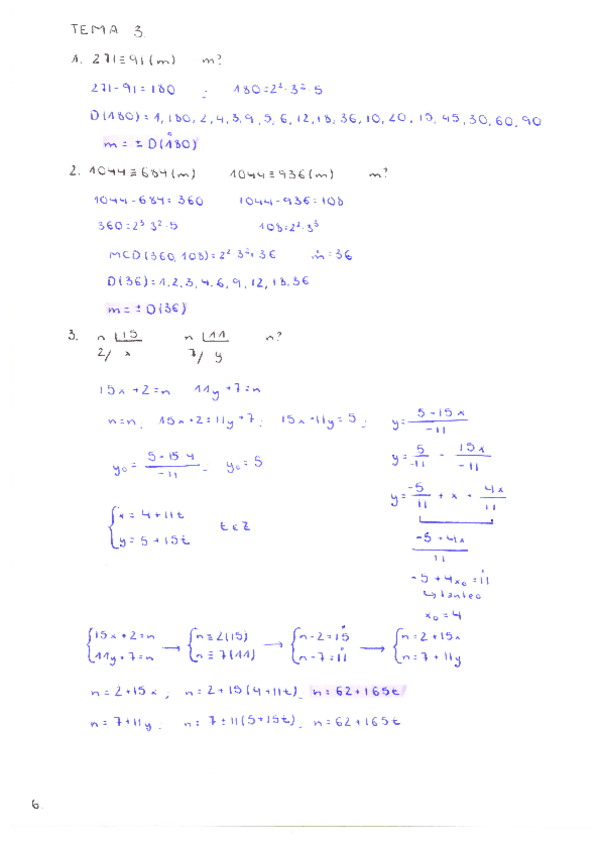 TEMA 3.
1. 271≡91(m) m?
271-91=180 ; 180=2²·3²·5
D(180)=1,180,2,4,3,9,5,6,12,18,36,10,20,15,45,30,60,90
m=±D(180)
2. 1044≡684(m) 1044≡936(m) m?
1044-684=360 1044-936=108
360=2³·3²·5 108=2²·3³
MCD(360,108)=2²·3²=36 ṁ=36
D(36)=1,2,3,4,6,9,12,18,36
m=±D(36)
3. n |15 n |11 n?
2/ x 7/ y
15x+2=n 11y+7=n
n=n; 15x+2=11y+7; 15x-11y=5; y=(5-15x)/-11
y₀=(5-15·4)/-11 y₀=5 y=5/-11 - 15x/-11
y=-5/11 + x + 4x/11
{x=4+11t
{y=5+15t t∈Z
(-5+4x)/11
-5+4x₀=1̇1
↳tanteo
x₀=4
{15x+2=n → {n≡2(15) → {n-2=1̇5 → {n=2+15x
{11y+7=n {n≡7(11) {n-7=1̇1 {n=7+11y
n=2+15x; n=2+15(4+11t). n=62+165t
n=7+11y; n=7+11(5+15t). n=62+165t
6.